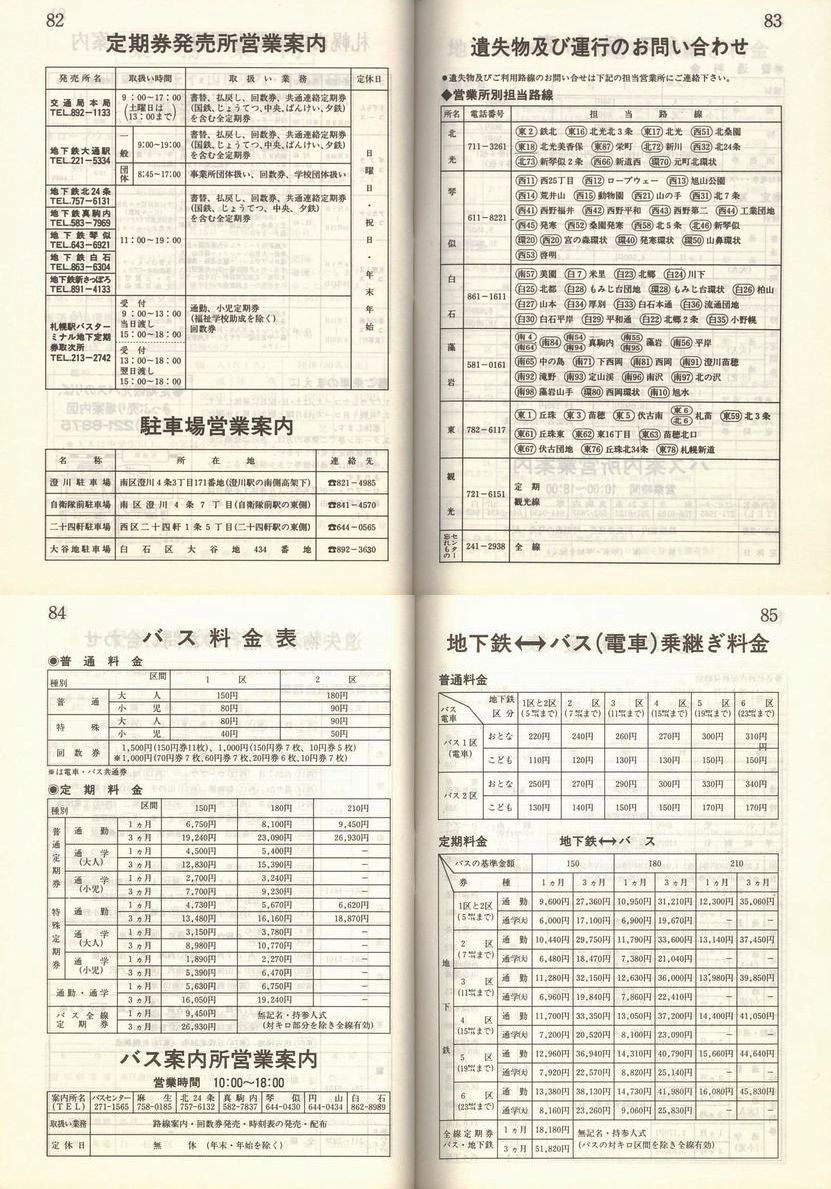 82
定期券発売所営業案内
発売所名 取扱い時間 取扱い業務 定休日
交通局本局 TEL.892-1133 9:00~17:00 (土曜日は 13:00まで) 書替、払戻し、回数券、共通連絡定期券 (国鉄、じょうてつ、中央、ばんけい、夕鉄) を含む全定期券
地下鉄大通駅 TEL.221-5334 一般 9:00~19:00 書替、払戻し、回数券、共通連絡定期券 (国鉄、じょうてつ、中央、ばんけい、夕鉄) を含む全定期券
団体 8:45~17:00 事業所団体扱い、回数券、学校団体扱い
地下鉄北24条 TEL.757-6131
地下鉄真駒内 TEL.583-7969
地下鉄琴似 TEL.643-6921
地下鉄白石 TEL.863-6304
地下鉄新さっぽろ TEL.891-4133
11:00~19:00 書替、払戻し、回数券、共通連絡定期券 (国鉄、じょうてつ、中央、夕鉄) を含む全定期券
札幌駅バスターミナル地下定期券取次所 TEL.213-2742
受付 9:00~13:00 当日渡し 15:00~18:00
受付 13:00~18:00 翌日渡し 15:00~18:00
通勤、小児定期券 (福祉学校助成を除く) 回数券
日曜日・祝日・年末年始
駐車場営業案内
名称 所在地 連絡先
澄川駐車場 南区澄川4条3丁目171番地(澄川駅の南側高架下) ☎821-4985
自衛隊前駐車場 南区澄川4条7丁目(自衛隊前駅の東側) ☎841-4570
二十四軒駐車場 西区二十四軒1条5丁目(二十四軒駅の東側) ☎644-0565
大谷地駐車場 白石区大谷地434番地 ☎892-3630
83
遺失物及び運行のお問い合わせ
●遺失物及びご利用路線のお問い合せは下記の担当営業所にご連絡下さい。
◆営業所別担当路線
所名 電話番号 担当路線
北光 711-3261
東2 鉄北 東16 北光北3条 東17 北光 西51 北桑園
東18 北光美香保 東87 栄町 北72 新川 西32 北24条
北73 新琴似2条 西66 新道西 環70 元町北環状
琴似 611-8221
西11 西25丁目 西12 ロープウェー 西13 旭山公園
西14 荒井山 西15 動物園 西21 山の手 西31 北7条
西41 西野福井 西42 西野平和 西43 西野第二 西44 工業団地
西45 発寒 西52 桑園発寒 西58 北5条 北46 新琴似
環20 西20 宮の森環状 環40 発寒環状 環50 山鼻環状
西53 啓明
白石 861-1611
南57 美園 白7 米里 白23 北郷 白24 川下
白25 北都 白28 もみじ台団地 環28 もみじ台環状 白26 柏山
白27 山本 白34 厚別 白33 白石本通 白36 流通団地
白30 白石平岸 白29 平和通 白22 北郷2条 白35 小野幌
藻岩 581-0161
南4 南64 南84 南54 南94 真駒内 南55 南95 藻岩 南56 平岸
南65 中の島 南71 下西岡 南81 西岡 南91 澄川苗穂
南92 滝野 南93 定山渓 南96 南沢 南97 北の沢
南98 藻岩山手 環80 西岡環状 南10 旭水
東 782-6117
東1 丘珠 東3 苗穂 東5 伏古南 東6 北6 札苗 東59 北3条
東61 丘珠東 東62 東16丁目 東63 苗穂北口
東67 伏古団地 東76 丘珠北34条 東78 札幌新道
観光 721-6151 定期 観光線
忘れものセンター 241-2938 全線
84
バス料金表
◉普通料金
種別 区間 1区 2区
普通 大人 150円 180円
小児 80円 90円
特殊 大人 80円 90円
小児 40円 50円
回数券 1,500円(150円券11枚)、1,000円(150円券7枚、10円券5枚)
※1,000円(70円券7枚,60円券7枚,20円券6枚,10円券7枚)
※は電車・バス共通券
◉定期料金
種別 区間 150円 180円 210円
普通定期券 通勤 1ヵ月 6,750円 8,100円 9,450円
3ヵ月 19,240円 23,090円 26,930円
通学(大人) 1ヵ月 4,500円 5,400円 −
3ヵ月 12,830円 15,390円 −
通学(小児) 1ヵ月 2,700円 3,240円 −
3ヵ月 7,700円 9,230円 −
特殊定期券 通勤 1ヵ月 4,730円 5,670円 6,620円
3ヵ月 13,480円 16,160円 18,870円
通学(大人) 1ヵ月 3,150円 3,780円 −
3ヵ月 8,980円 10,770円 −
通学(小児) 1ヵ月 1,890円 2,270円 −
3ヵ月 5,390円 6,470円 −
通勤・通学 1ヵ月 5,630円 6,750円 −
3ヵ月 16,050円 19,240円 −
バス全線定期券 1ヵ月 9,450円 無記名・持参人式
3ヵ月 26,930円 (対キロ部分を除き全線有効)
バス案内所営業案内
営業時間 10:00~18:00
案内所名 (TEL) バスセンター 271-1565 麻生 758-0185 北24条 757-6132 真駒内 582-7837 琴似 644-0430 円山 644-0434 白石 862-8989
取扱い業務 路線案内・回数券発売・時刻表の発売・配布
定休日 無休 (年末・年始を除く)
85
地下鉄⟷バス(電車)乗継ぎ料金
普通料金
バス電車 地下鉄区分 1区と2区 (5㌔まで) 2区 (7㌔まで) 3区 (11㌔まで) 4区 (15㌔まで) 5区 (19㌔まで) 6区 (23㌔まで)
バス1区(電車) おとな 220円 240円 260円 270円 300円 310円
円
こども 110円 120円 130円 130円 150円 150円
バス2区 おとな 250円 270円 290円 300円 330円 340円
こども 130円 140円 150円 150円 170円 170円
定期料金 地下鉄⟷バス
バスの基準金額 150 180 210
券種 1ヵ月 3ヵ月 1ヵ月 3ヵ月 1ヵ月 3ヵ月
地下鉄
1区と2区 (5㌔まで) 通勤 9,600円 27,360円 10,950円 31,210円 12,300円 35,060円
通学(大) 6,000円 17,100円 6,900円 19,670円 − −
2区 (7㌔まで) 通勤 10,440円 29,750円 11,790円 33,600円 13,140円 37,450円
通学(大) 6,480円 18,470円 7,380円 21,040円 − −
3区 (11㌔まで) 通勤 11,280円 32,150円 12,630円 36,000円 13,980円 39,850円
通学(大) 6,960円 19,840円 7,860円 22,410円 − −
4区 (15㌔まで) 通勤 11,700円 33,350円 13,050円 37,200円 14,400円 41,050円
通学(大) 7,200円 20,520円 8,100円 23,090円 − −
5区 (19㌔まで) 通勤 12,960円 36,940円 14,310円 40,790円 15,660円 44,640円
通学(大) 7,920円 22,570円 8,820円 25,140円 − −
6区 (23㌔まで) 通勤 13,380円 38,130円 14,730円 41,980円 16,080円 45,830円
通学(大) 8,160円 23,260円 9,060円 25,830円 − −
全線定期券 バス・地下鉄 1ヵ月 18,180円 無記名・持参人式
3ヵ月 51,820円 (バスの対キロ区間を除き全線有効)